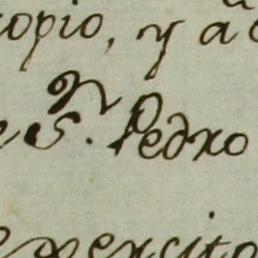 copio, y a
S.ⁿ Pedro
exercito